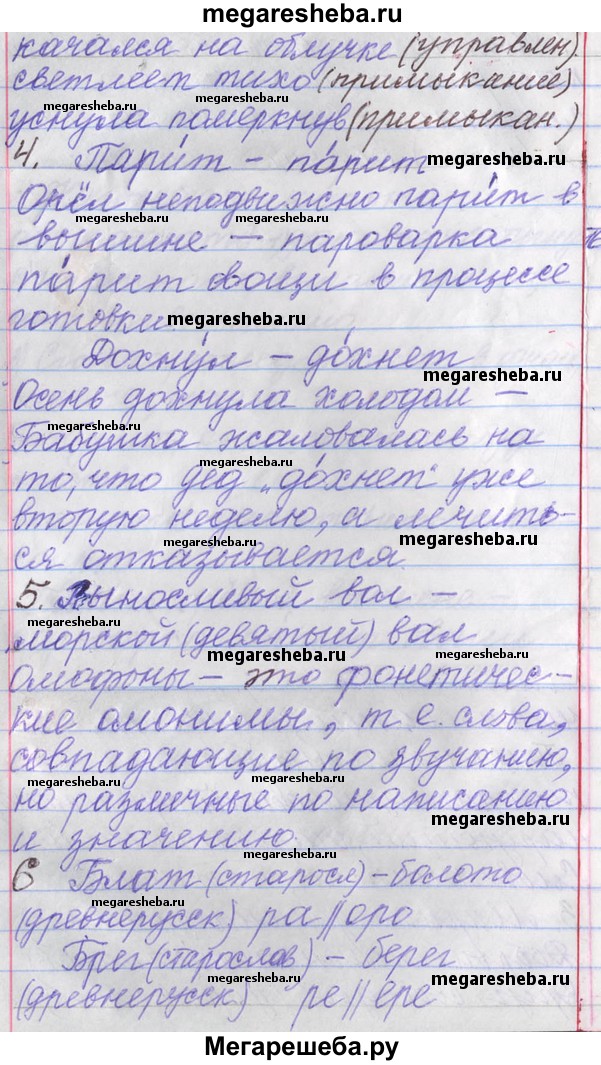 megaresheba.ru
качался на облучке (управлен).
светлеет тихо (примыкание)
megaresheba.ru
megaresheba.ru
уснула померкнув (примыкан.)
4. Пари́т – па́рит
megaresheba.ru
Орёл неподвижно пари́т в
megaresheba.ru
megaresheba.ru
вышине — пароварка
па́рит овощи в процессе
готовки.
megaresheba.ru
Дохну́л – до́хнет
megaresheba.ru
Осень дохнула холодом –
megaresheba.ru
Бабушка жаловалась на
megaresheba.ru
то, что дед „до́хнет" уже
вторую неделю, а лечить-
megaresheba.ru
ся отказывается.
megaresheba.ru
5. Выносливый вол –
морской (девятый) вал
megaresheba.ru
megaresheba.ru
омофоны – это фонетичес-
кие омонимы, т. е. слова,
совпадающие по звучанию,
megaresheba.ru
megaresheba.ru
но различные по написанию
megaresheba.ru
и значению.
megaresheba.ru
6 Блат (старосл) – болото
megaresheba.ru
(древнерусск) ра // оро
Брег (старослав) – берег
megaresheba.ru
megaresheba.ru
(древнерусск) ре // ере
Мегарешеба.ру